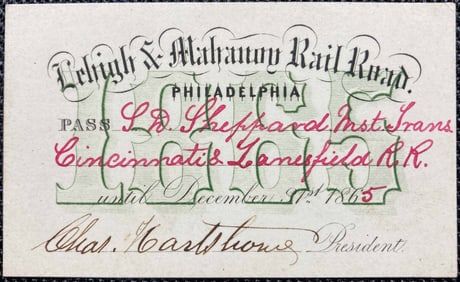 Lehigh & Mahanoy Rail Road.
PHILADELPHIA
1865
PASS S. D. Sheppard, Mst. Trans
Cincinnati & Zanesfield R. R.
until December 31st 1865
Chas. Hartshorne President.